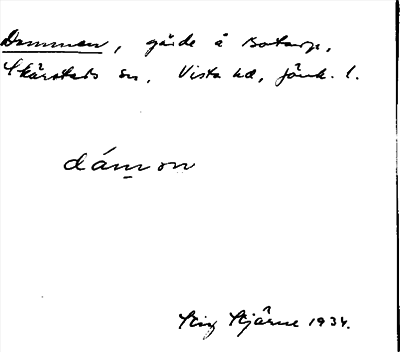 Dammen, gärde å Botarp,
Skärstads sn, Vista hd, Jönk. l.
dám̱on
Stig Stjärne 1934.